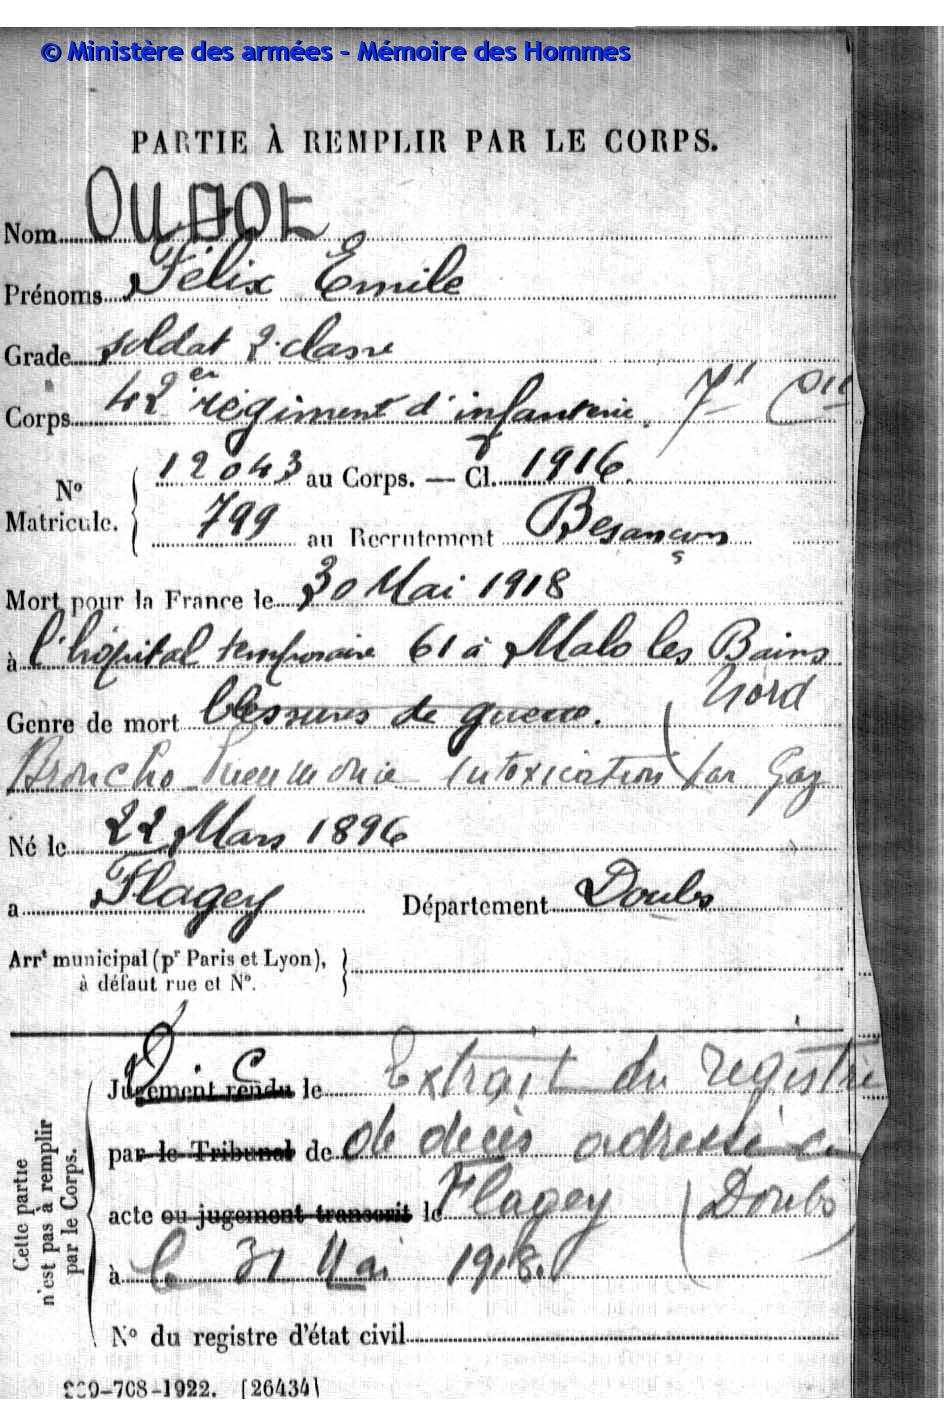 © Ministère des armées - Mémoire des Hommes
PARTIE À REMPLIR PAR LE CORPS.
Nom OUDOT
Prénoms Félix Emile
Grade soldat 2e classe
Corps 42em régiment d'infanterie. 7e Cie
No Matricule. 12043 au Corps. — Cl. 1916.
799 au Recrutement Besançon
Mort pour la France le 30 Mai 1918
à l'hôpital temporaire 61 à Malo les Bains
Nord
Genre de mort blessures de guerre.
Broncho Pneumonie Intoxication par Gaz
Né le 22 Mars 1896
a Flagey Département Doubs
Arrt municipal (pr Paris et Lyon),
à défaut rue et No.
Cette partie n'est pas à remplir par le Corps.
Jugement rendu le Extrait du registre
par le Tribunal de de décès adressé a
acte ou jugement transcrit le Flagey (Doubs)
à le 31 Mai 1918.
No du registre d'état civil
-708-1922. [26434]